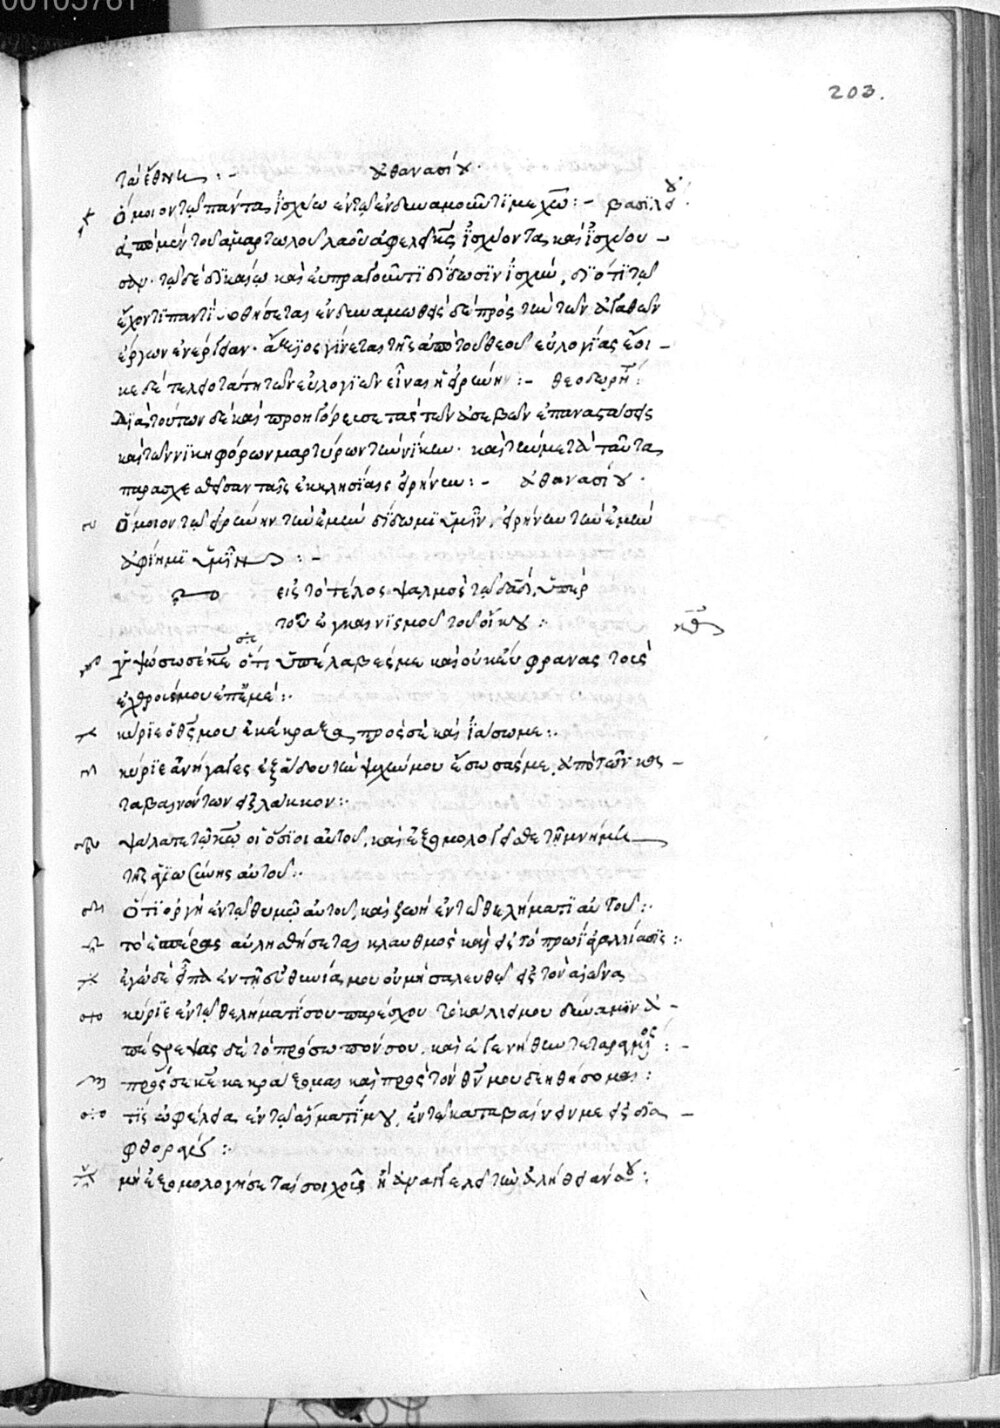 203.
τὰ ἔθνη :- ἀθανασίου.
ὅμοιον τῷ πάντα ἰσχύω ἐν τῷ ἐνδυναμοῦντί με χῶ :- βασιλείου:
ἀπὸ μὲν τοῦ ἁμαρτωλοῦ λαοῦ ἀφελεῖ κς ἰσχύοντα καὶ ἰσχύου-
σαν. τῷ δὲ δικαίῳ καὶ εὐπραγοῦντι δίδωσιν ἰσχύν, διότι τῷ
ἔχοντι παντὶ δοθήσεται ἐνδυναμωθεὶς δὲ πρὸς τὴν τῶν ἀγαθῶν
ἔργων ἐνέργειαν. ἄξιος γίνεται τῆς ἀπὸ τοῦ θεοῦ εὐλογίας ἔοι-
κε δὲ τελειοτάτη τῶν εὐλογιῶν εἶναι ἡ εἰρήνη :- θεοδωρήτ:
διὰ τούτων δὲ καὶ προηγόρευσε τὰς τῶν ἀσεβῶν ἐπαναστάσεις
καὶ τῶν νικηφόρων μαρτύρων τὴν νίκην. καὶ τὴν μετὰ ταῦτα
παρασχεθεῖσαν ταῖς ἐκκλησίαις εἰρήνην :- ἀθανασίου.
ὅμοιον τῷ εἰρήνην τὴν ἐμὴν δίδωμι ὑμῖν, εἰρήνην τὴν ἐμὴν
ἀφίημι ὑμῖν :-
εἰς τὸ τέλος ψαλμὸς τῷ δαδ, ὑπὲρ
τοῦ ἐγκαινισμοῦ τοῦ οἴκου :
κθ
ὑψώσω σε κε ὅτι ὑπέλαβές με καὶ οὐκ εὔφρανας τοὺς
ἐχθρούς μου ἐπ' ἐμέ :.
κύριε ὁ θς μου ἐκέκραξα πρὸς σὲ καὶ ἰάσω με :.
κύριε ἀνήγαγες ἐξ ᾅδου τὴν ψυχήν μου ἔσωσάς με, ἀπὸ τῶν κα-
ταβαινόντων εἰς λάκκον :.
ψάλατε τῷ κῶ οἱ ὅσιοι αὐτοῦ, καὶ ἐξομολογεῖσθε τῇ μνήμῃ
τῆς ἁγιωσύνης αὐτοῦ :.
ὅτι ὀργὴ ἐν τῷ θυμῷ αὐτοῦ, καὶ ζωὴ ἐν τῷ θελήματι αὐτοῦ :.
τὸ ἑσπέρας αὐλισθήσεται κλαυθμὸς καὶ εἰς τὸ πρωῒ ἀγαλλίασις :.
ἐγὼ δὲ εἶπα ἐν τῇ εὐθηνίᾳ μου οὐ μὴ σαλευθῶ εἰς τὸν αἰῶνα
κύριε ἐν τῷ θελήματί σου παρέσχου τῷ κάλλει μου δύναμιν ἀ-
πέστρεψας δὲ τὸ πρόσωπόν σου, καὶ ἐγενήθην τεταραγμένος :-
πρὸς σὲ κε κεκράξομαι καὶ πρὸς τὸν θν μου δεηθήσομαι :
τίς ὠφέλεια ἐν τῷ αἵματί μου, ἐν τῷ καταβαίνειν με εἰς δια-
φθοράν :.
μὴ ἐξομολογήσεταί σοι χοῦς ἢ ἀναγγελεῖ τὴν ἀλήθειάν σου :